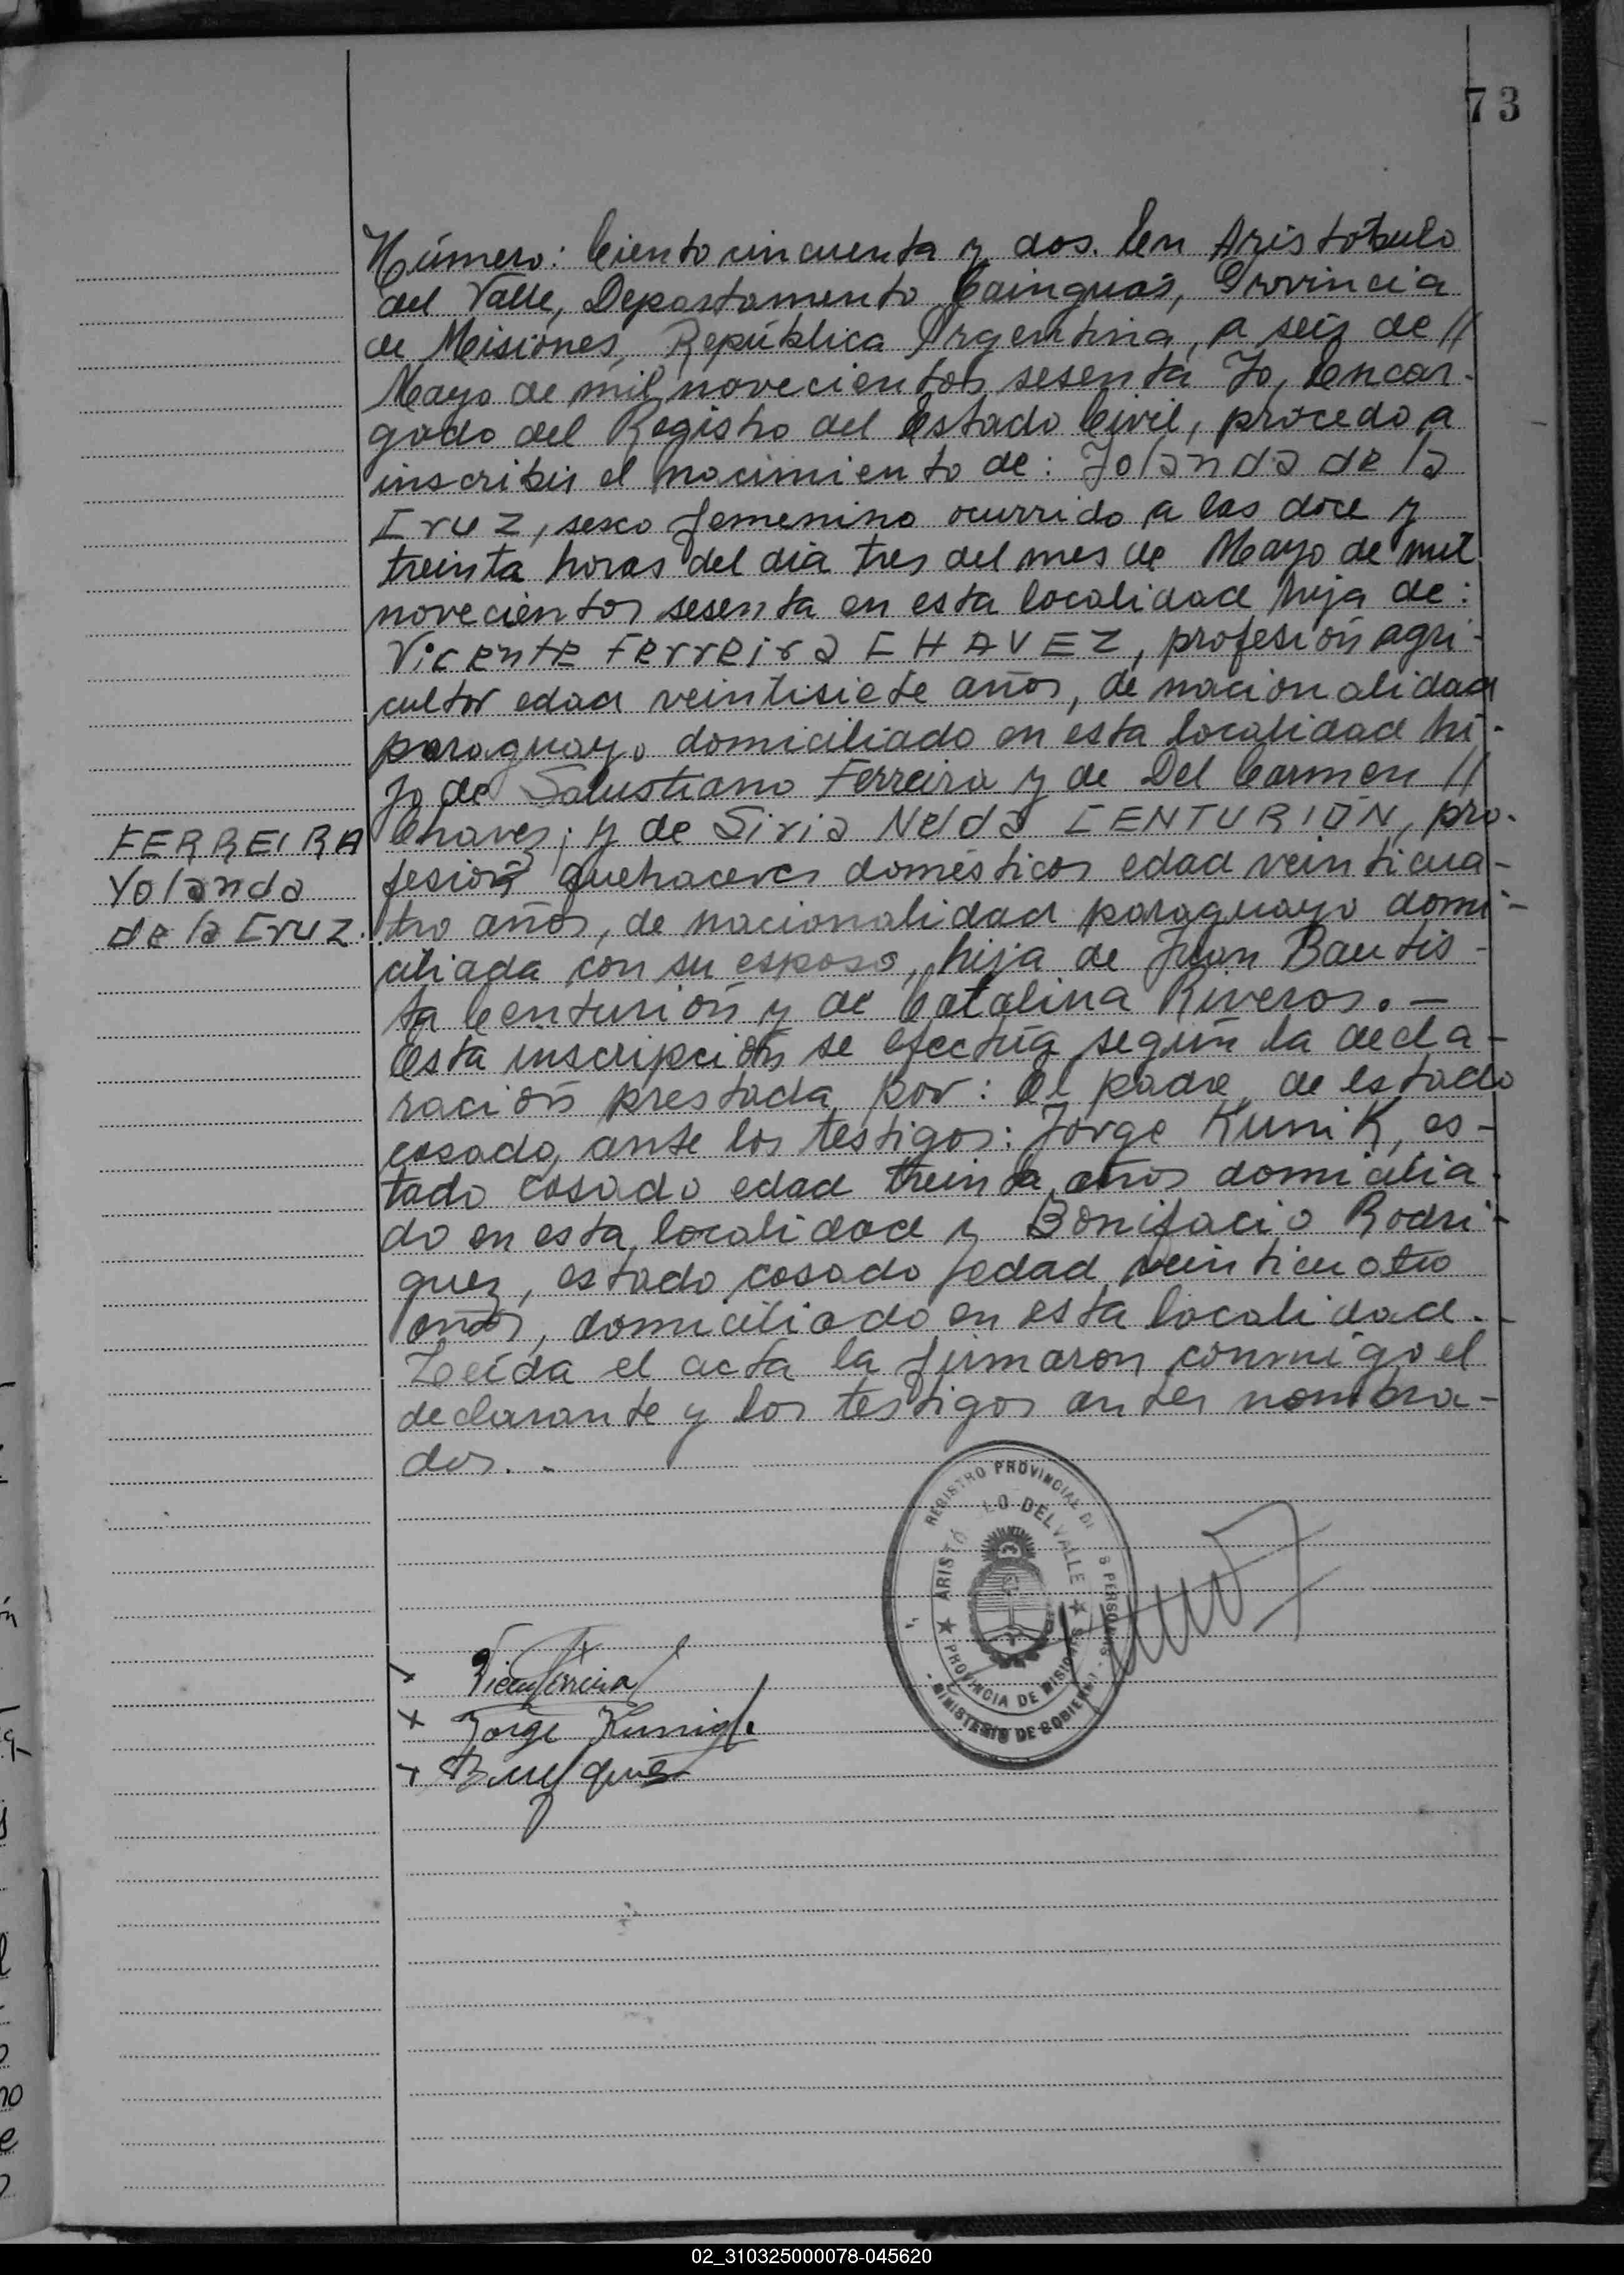 73
Número: Ciento cincuenta y dos. En Aristóbulo
del Valle, Departamento Cainguás, Provincia
de Misiones, República Argentina, a seis de //
Mayo de mil novecientos sesenta Yo, Encar-
gado del Registro del Estado Civil, procedo a
inscribir el nacimiento de: Yolanda de la
Cruz, sexo femenino ocurrido a las doce y
treinta horas del día tres del mes de Mayo de mil
novecientos sesenta en esta localidad hija de:
Vicente Ferreira CHAVEZ, profesión agri-
cultor edad veintisiete años, de nacionalidad
paraguayo domiciliado en esta localidad hi-
jo de Salustiano Ferreira y de Del Carmen //
Chavez; y de Siria Nelda CENTURIÓN, pro-
fesión quehaceres domésticos edad veinticua-
tro años, de nacionalidad paraguaya domi-
ciliada con su esposo, hija de Juan Bautis-
ta Centurión y de Catalina Riveros.-
Esta inscripción se efectúa según la decla-
ración prestada por: el padre, de estado
casado, ante los testigos: Jorge Kunik, es-
tado casado edad treinta años domicilia-
do en esta localidad y Bonifacio Rodri-
guez, estado casado edad veinticuatro
años, domiciliado en esta localidad.-
Leída el acta la firmaron conmigo el
declarante y los testigos antes nombra-
dos.-
FERREIRA
Yolanda
de la Cruz.
REGISTRO PROVINCIAL DE
S PERSONAS
ARISTÓ LO DEL VALLE
PROVINCIA DE MISIONES
MINISTERIO DE GOBIERNO
Jorge Kunig
02_310325000078-045620